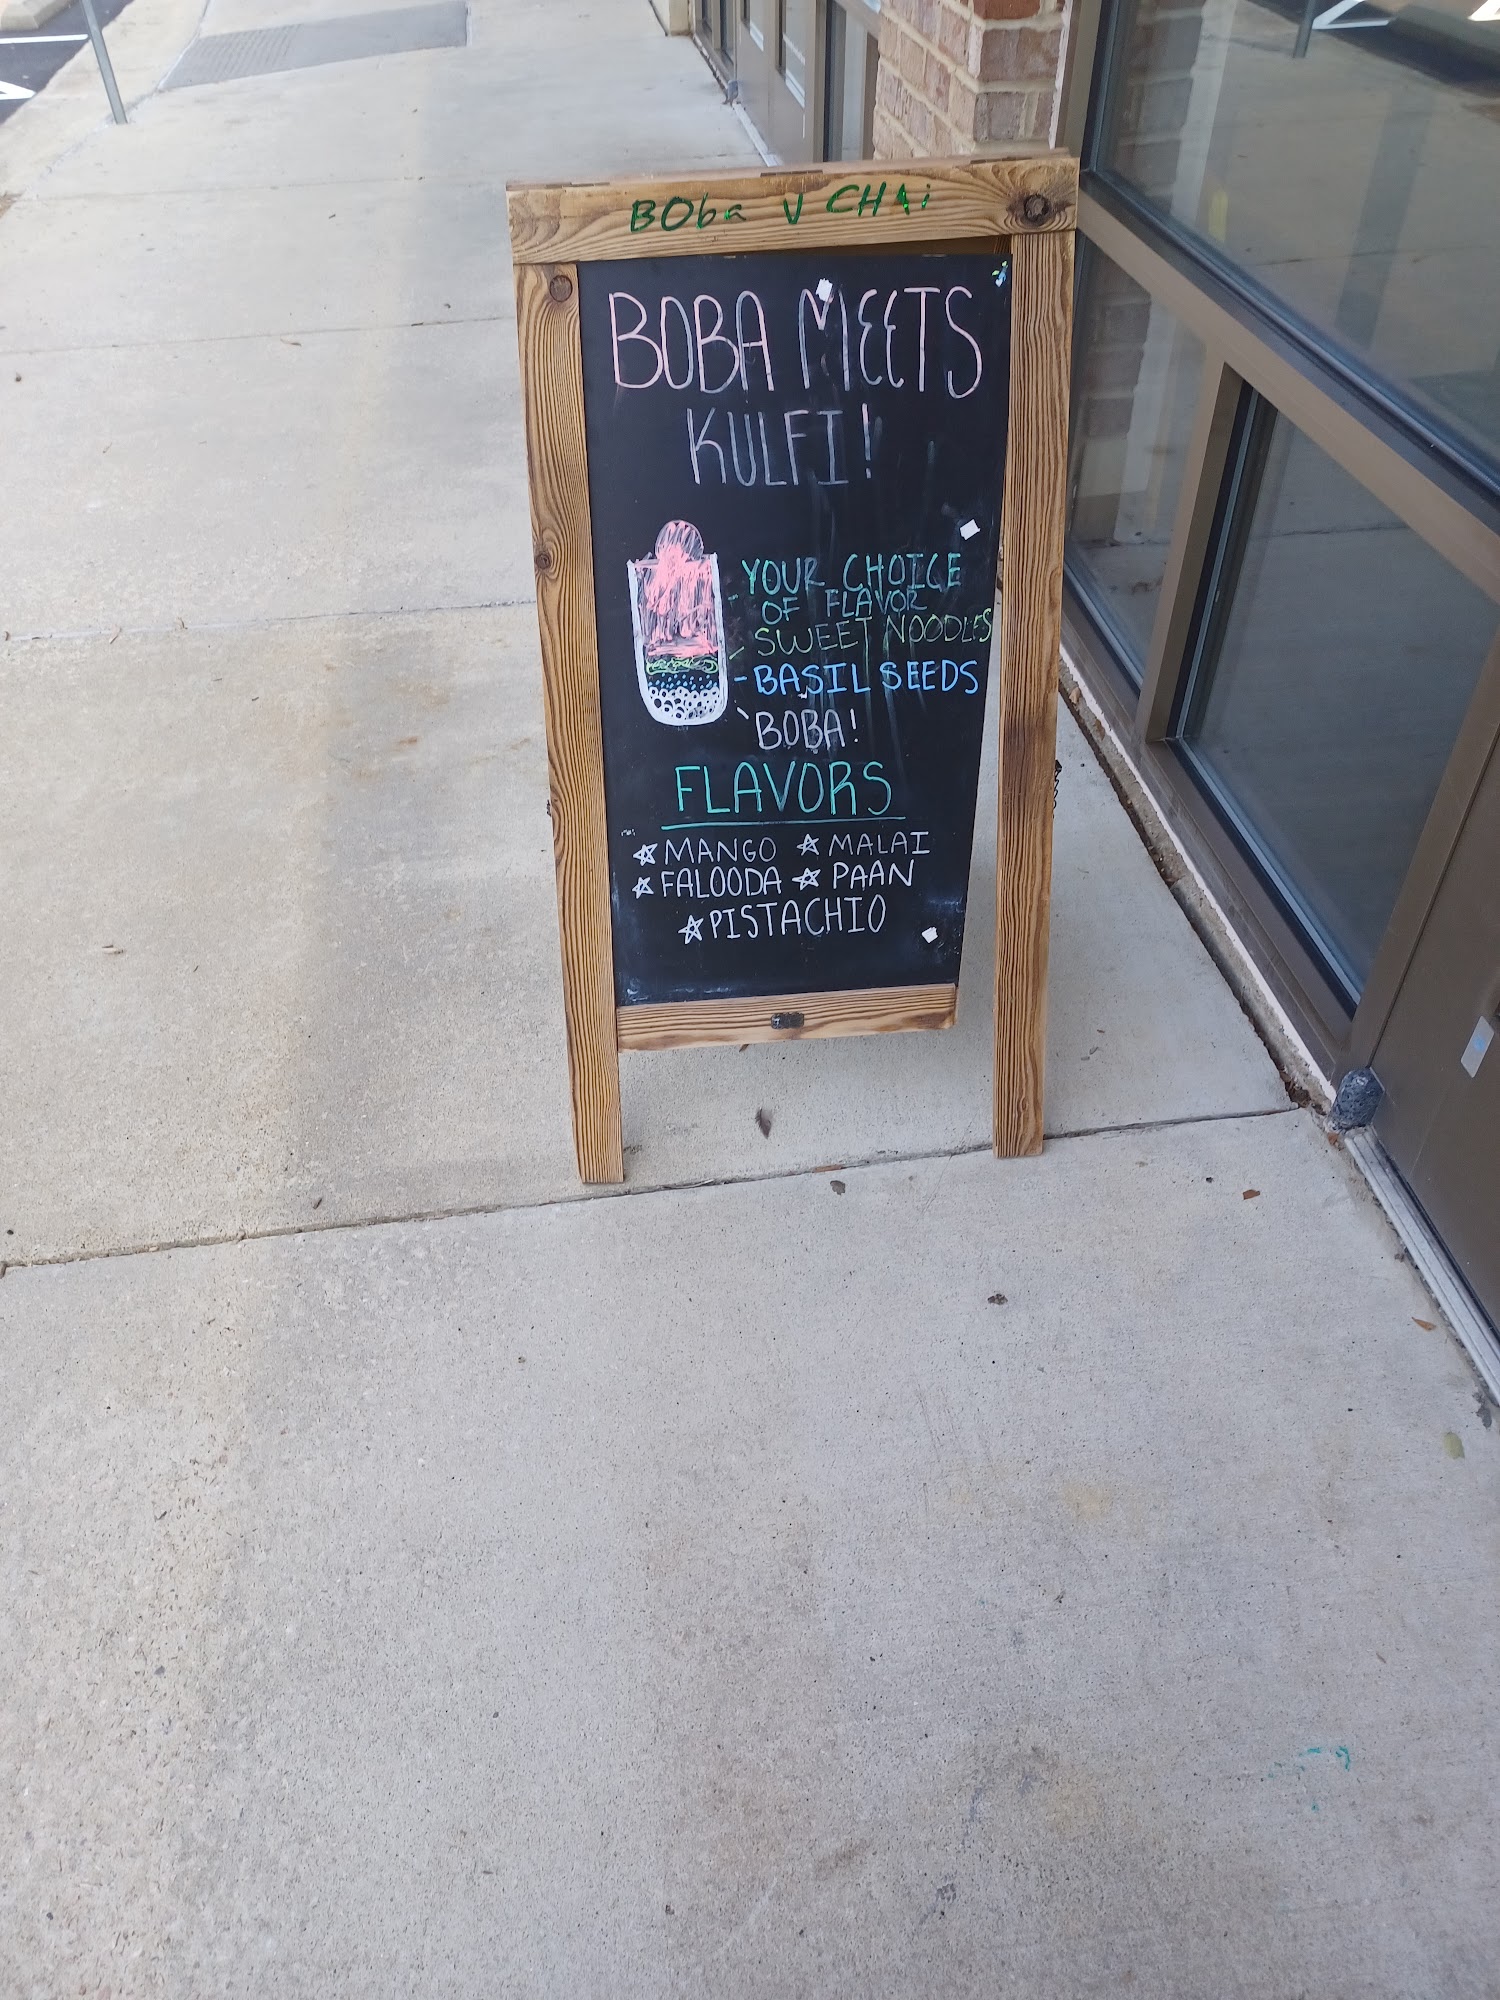 BOba V CHAi
BOBA MEETS
KULFI!
- YOUR CHOICE
OF FLAVOR
- SWEET NOODLES
- BASIL SEEDS
- BOBA!
FLAVORS
☆ MANGO ☆ MALAI
☆ FALOODA ☆ PAAN
☆ PISTACHIO